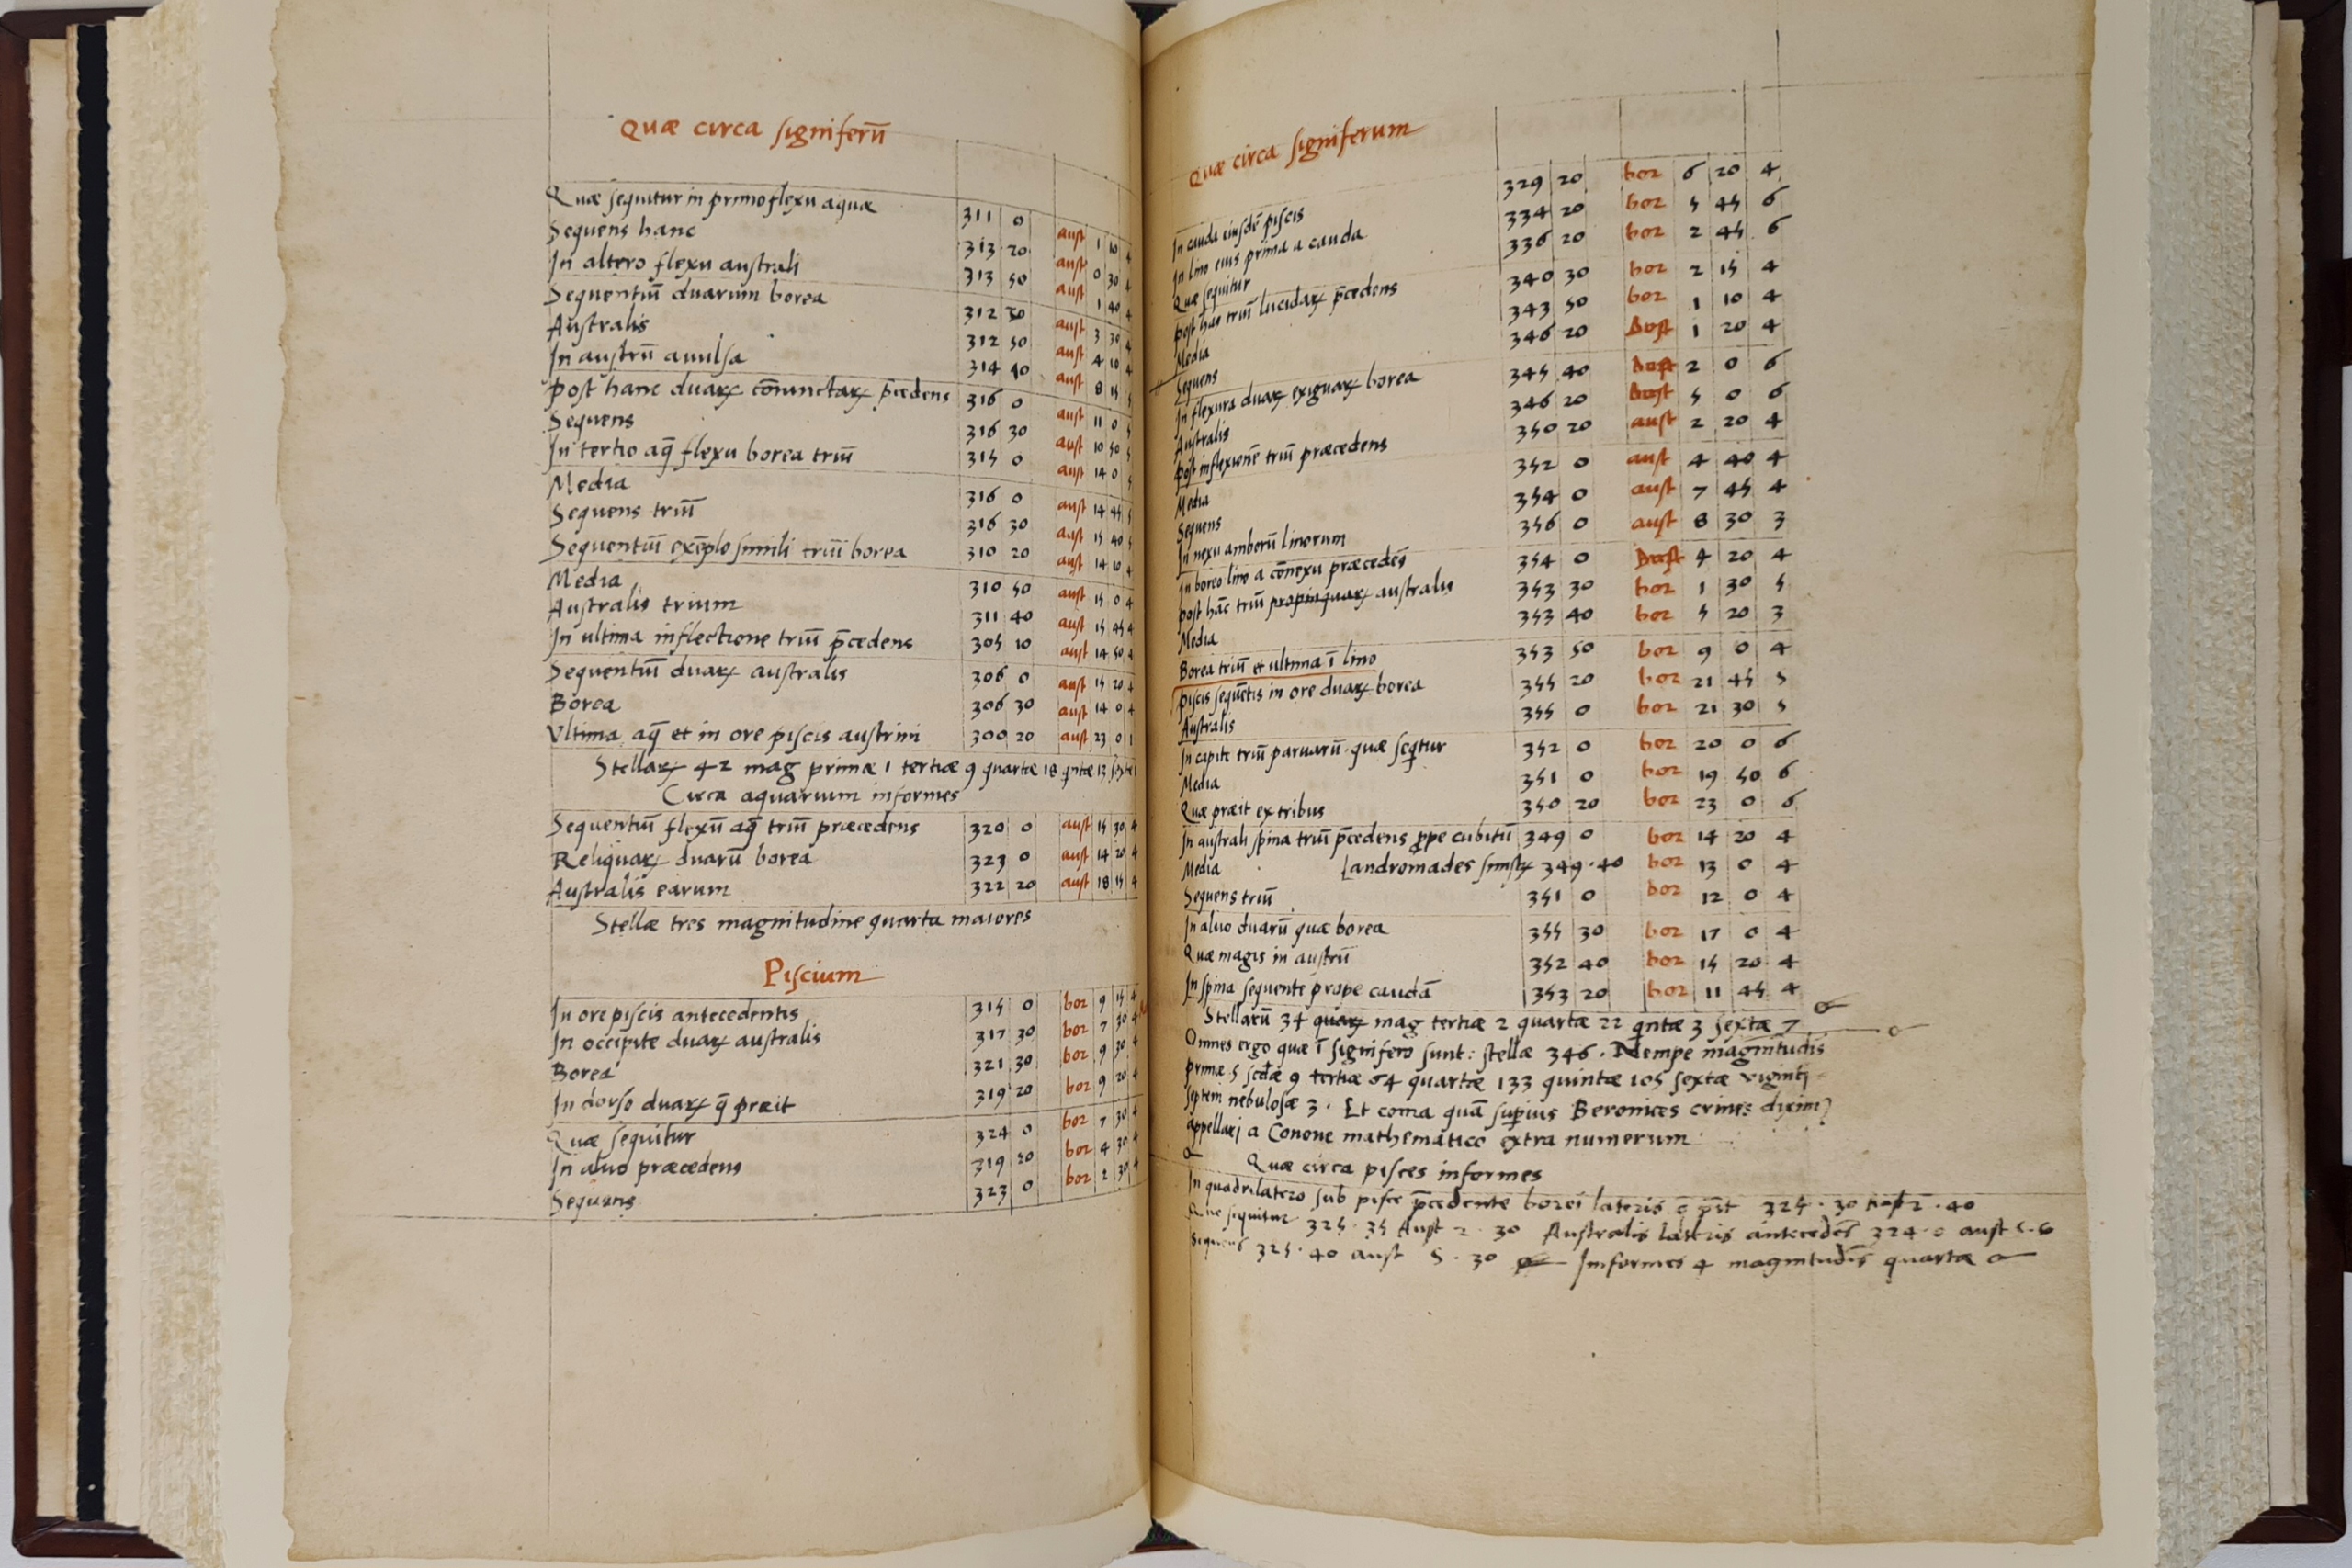 Quæ circa signiferū
Quæ sequitur in primo flexu aquæ 311 0 aust 1 10 4
Sequens hanc 313 20 aust 0 30 4
In altero flexu australi 313 50 aust 1 40 4
Sequentiū duarum borea 312 30 aust 3 30 4
Australis 312 50 aust 4 10 4
In austrū auulsa 314 40 aust 8 15 5
Post hanc duaꝝ cōiunctaꝝ p̄cedens 316 0 aust 11 0 5
Sequens 316 30 aust 10 50 5
In tertio aq̄ flexu borea triū 315 0 aust 14 0 5
Media 316 0 aust 14 45 5
Sequens triū 316 30 aust 15 40 5
Sequentiū exēplo simili triū borea 310 20 aust 14 10 4
Media 310 50 aust 15 0 4
Australis trium 311 40 aust 15 45 4
In ultima inflectione triū p̄cedens 305 10 aust 14 50 4
Sequentiū duaꝝ australis 306 0 aust 15 20 4
Borea 306 30 aust 14 0 4
Vltima aq̄ et in ore piscis austrini 300 20 aust 23 0 1
Stellaꝝ 42 mag primæ 1 tertiæ 9 quartæ 18 q̄ntæ 13 sextæ 1
Circa aquarium informes
Sequentiū flexū aq̄ triū præcedens 320 0 aust 15 30 4
Reliquaꝝ duarū borea 323 0 aust 14 20 4
Australis earum 322 20 aust 18 15 4
Stellæ tres magnitudine quarta maiores
Piscium
In ore piscis antecedentis 315 0 bor 9 15 4
In occipite duaꝝ australis 317 30 bor 7 30 4
Borea 321 30 bor 9 30 4
In dorso duaꝝ q̄ præit 319 20 bor 9 20 4
Quæ sequitur 324 0 bor 7 30 4
In aluo præcedens 319 20 bor 4 30 4
Sequens 323 0 bor 2 30 4
Quæ circa signiferum
In cauda eiusdē piscis 329 20 bor 6 20 4
In lino eius prima a cauda 334 20 bor 5 45 6
Quæ sequitur 336 20 bor 2 45 6
Post has triū lucidaꝝ p̄cedens 340 30 bor 2 15 4
Media 343 50 bor 1 10 4
Sequens 346 20 Aust 1 20 4
In flexura duaꝝ exiguaꝝ borea 345 40 Aust 2 0 6
Australis 346 20 Aust 5 0 6
Post inflexionē triū præcedens 350 20 aust 2 20 4
Media 352 0 aust 4 40 4
Sequens 354 0 aust 7 45 4
In nexu amborū linorum 356 0 aust 8 30 3
In boreo lino a cōnexu præcedēs 354 0 Aust 4 20 4
Post hāc triū propinquaꝝ australis 353 30 bor 1 30 5
Media 353 40 bor 5 20 3
Borea triū et ultima ī lino 353 50 bor 9 0 4
Piscis sequētis in ore duaꝝ borea 355 20 bor 21 45 5
Australis 355 0 bor 21 30 5
In capite triū paruarū quæ seqtur 352 0 bor 20 0 6
Media 351 0 bor 19 50 6
Quæ præit ex tribus 350 20 bor 23 0 6
In australi spina triū p̄cedens ꝓpe cubitū 349 0 bor 14 20 4
Media Landromades sinistꝝ 349 40 bor 13 0 4
Sequens triū 351 0 bor 12 0 4
In aluo duarū quæ borea 355 30 bor 17 0 4
Quæ magis in austrū 352 40 bor 15 20 4
In spina sequente prope caudā 353 20 bor 11 45 4
Stellarū 34 quaꝝ mag tertiæ 2 quartæ 22 q̄ntæ 3 sextæ 7
Omnes ergo quæ ī signifero sunt: stellæ 346. Nempe magnitudīs
primæ 5 scdæ 9 tertiæ 64 quartæ 133 quintæ 105 sextæ viginti
septem nebulosæ 3. Et coma quā superius Beronices crines diximꝰ
appellari a Conone mathematico extra numerum
Quæ circa pisces informes
In quadrilatero sub pisce p̄cedente borei lateris q̄ p̄it 325 . 30 Aust 2 . 40
Que sequitur 325 . 35 Aust 2 . 30 Australis lateris antecedēs 324 . 0 aust 5 . 50
Sequens 325 . 40 aust 5 . 30 Informes 4 magnitudīs quartæ